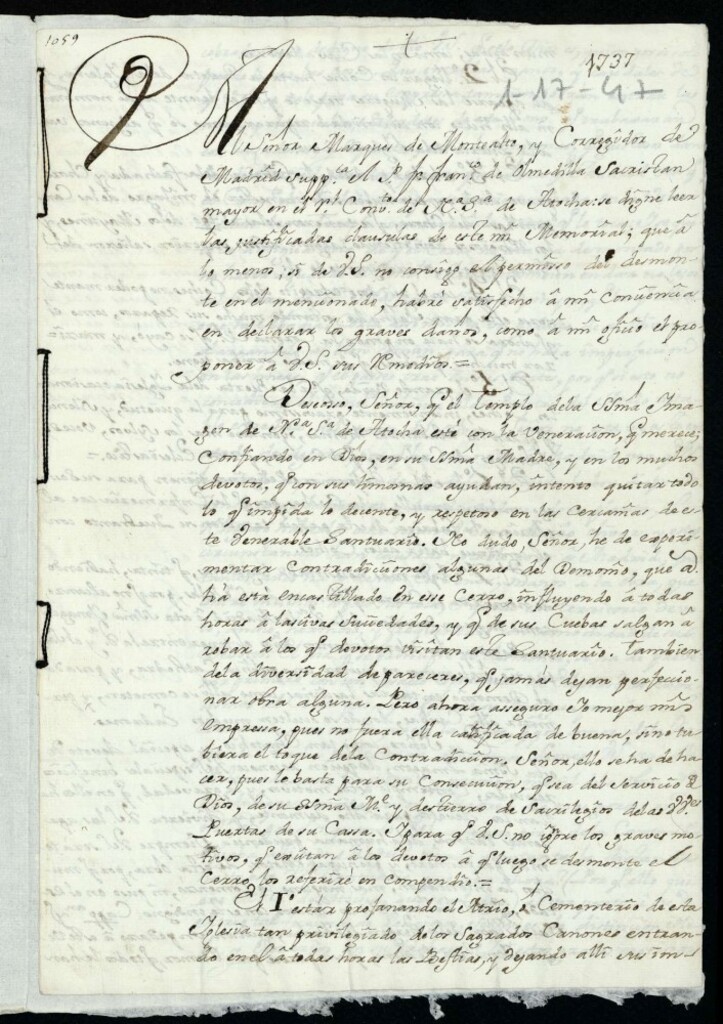 1059
1737
1-17-47
Al Señor Marques de Montealto, y Corregidor de
Madrid supp.ca el P.e fr. Fran.co de Olmedilla Sacristan
mayor en el R.l Conv.to de N.a S.a de Atocha: se digne leer
las justificadas clausulas de este mi Memorial; que â
lo menos, si de V.S. no consigo el permisso del desmon-
te en el mencionado, habré satisfecho â mi conciencia
en declarar los graves daños, como â mi oficio el pro-
poner â V.S. sus Remedios.=
Deseoso, Señor, q.e el Templo dela SSma Ima-
gen de N.a S.a de Atocha esté con la Veneracion, q.e merece;
Confiando en Dios, en su SSma Madre, y en los muchos
devotos, q.e con sus limosnas ayudan, intento quitar todo
lo q.e impida lo decente, y respetoso en las Cercanias de es-
te Venerable Santuario. No dudo, Señor, he de experi-
mentar Contradicciones algunas del Demonio, que
há está encastillado en esse Cerro, influyendo â todas
horas â lascivas suciedades, y q.e de sus Cuebas salgan â
robar â los q.e devotos visitan este Santuario. Tambien
dela diversidad de pareceres, q.e jamás dejan perfecio-
nar obra alguna. Pero ahora asseguro Yo mejor mi
empressa, pues no fuera ella calificada de buena, si no tu-
biera el toque dela Contradicion. Señor, ello se ha de ha-
cer, pues le basta para su Consecucion, q.e sea del Servicio de
Dios, de su SSma M.e y destierro de Sacrilegios delas
Puertas de su Cassa. Y para q.e V.S. no ignore los graves mo-
tivos, q.e excitan â los devotos â q.e luego se desmonte el
Cerro, los referiré en compendio.=
El 1.º estar profanando el Atrio, ô Cementerio de esta
Iglesia tan privilegiado de los Sagrados Canones entran-
do en el â todas horas las Bestias, y dejando alli sus in-